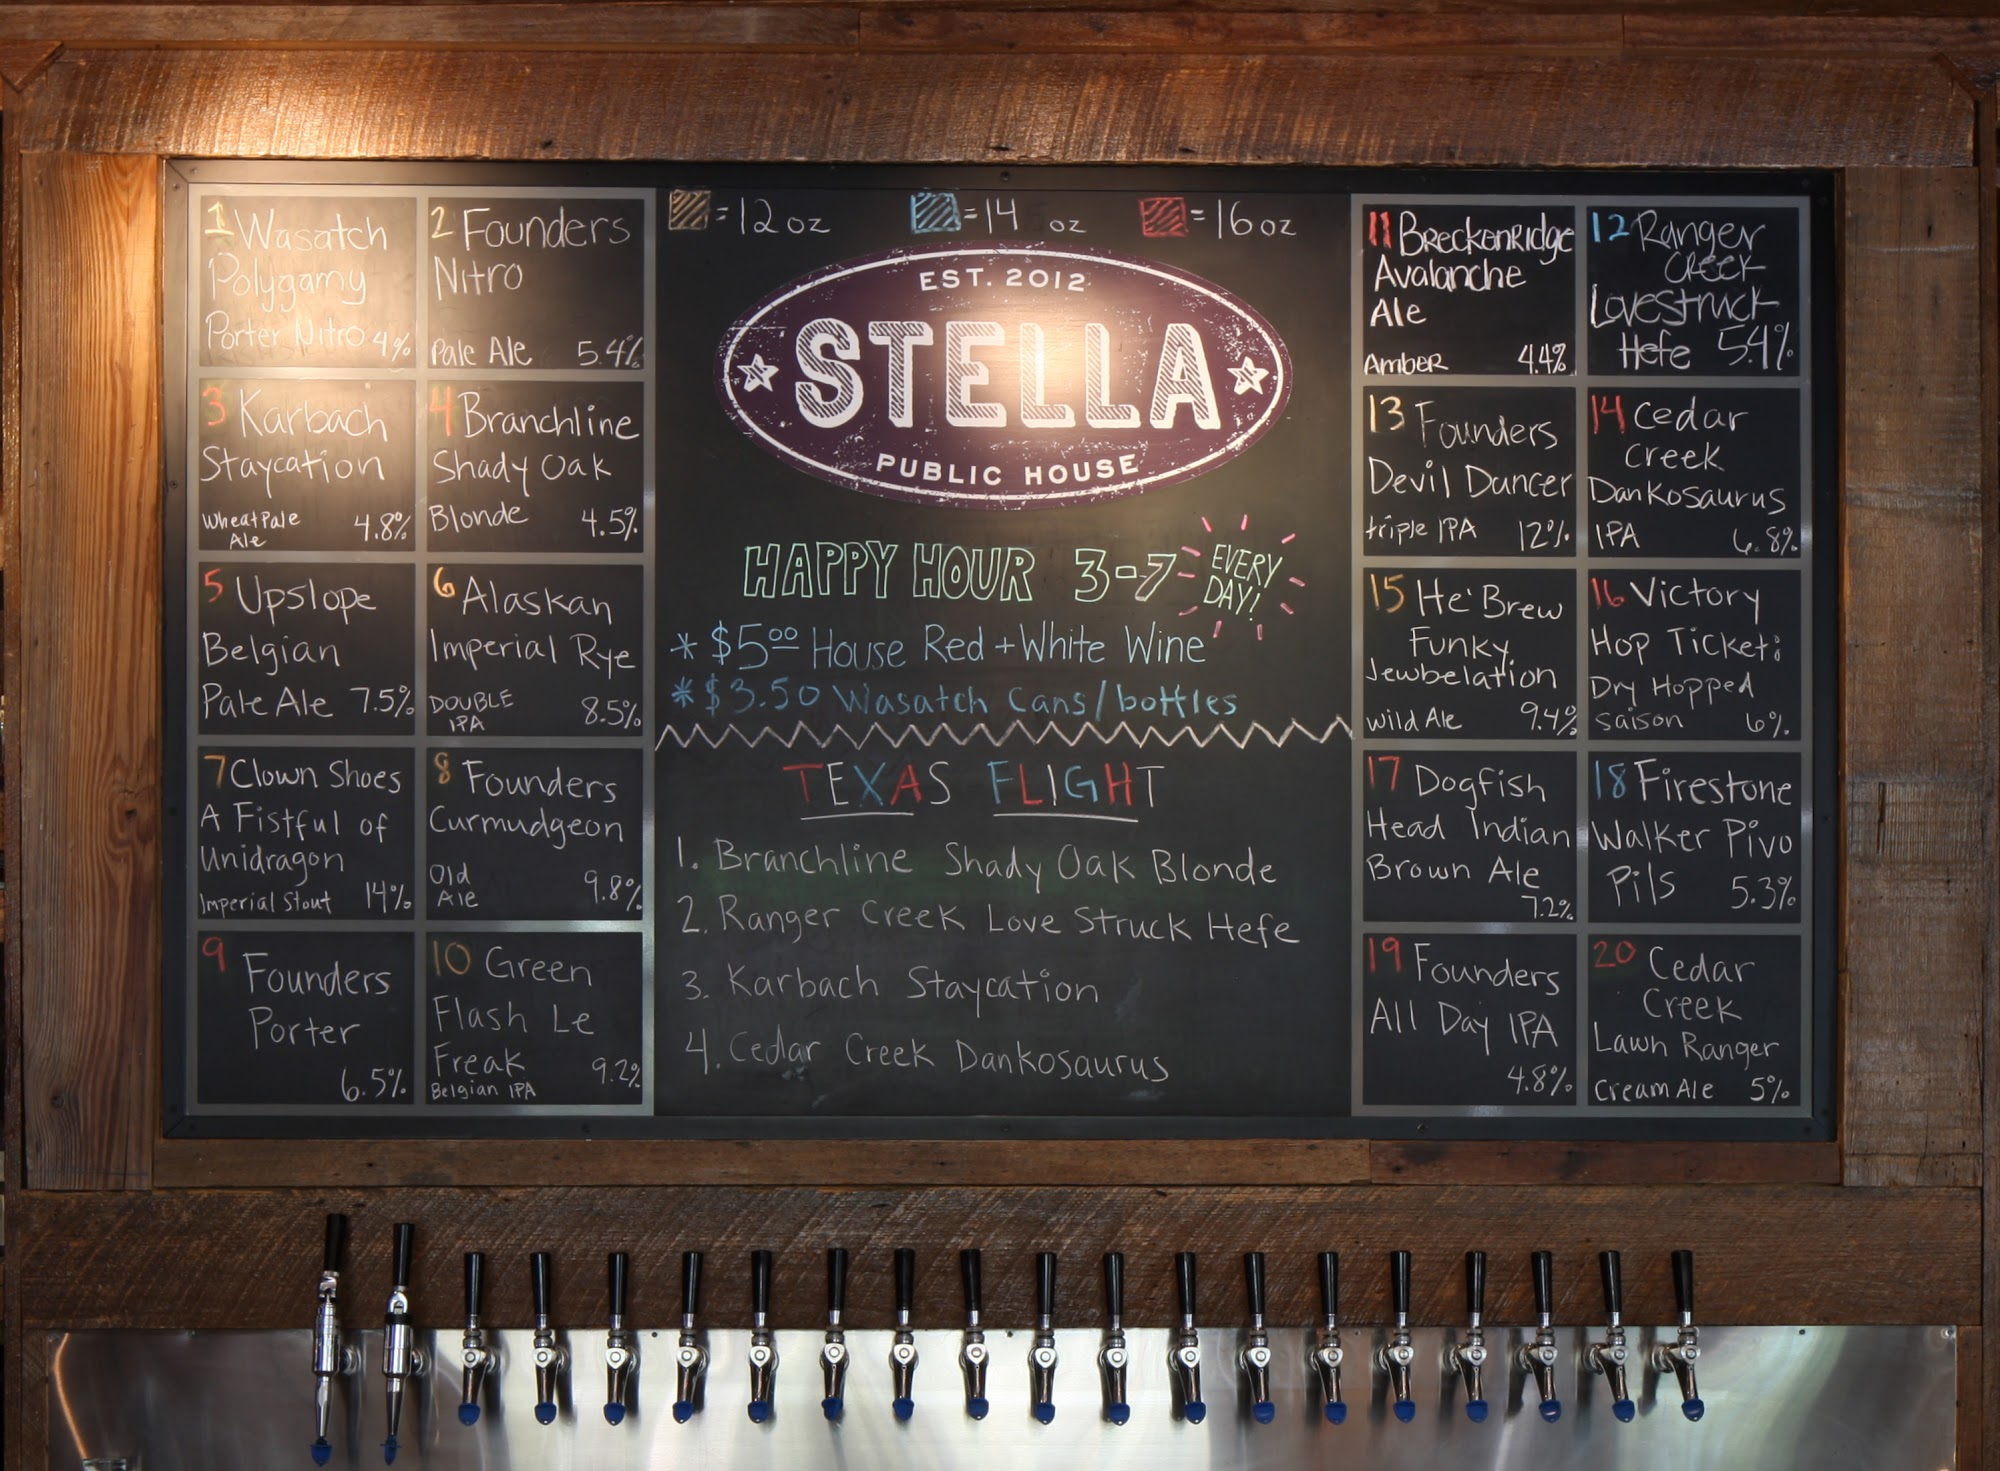 1 Wasatch
Polygamy
Porter Nitro 4%
2 Founders
Nitro
Pale Ale 5.4%
3 Karbach
Staycation
Wheat Pale
Ale 4.8%
4 Branchline
Shady Oak
Blonde 4.5%
5 Upslope
Belgian
Pale Ale 7.5%
6 Alaskan
Imperial Rye
DOUBLE
IPA 8.5%
7 Clown Shoes
A Fistful of
Unidragon
Imperial Stout 14%
8 Founders
Curmudgeon
Old
Ale 9.8%
9 Founders
Porter
6.5%
10 Green
Flash Le
Freak
Belgian IPA 9.2%
=12 oz =14 oz =16 oz
EST. 2012
STELLA
PUBLIC HOUSE
HAPPY HOUR 3-7 EVERY
DAY!
* $5.00 House Red + White Wine
* $3.50 Wasatch Cans/bottles
TEXAS FLIGHT
1. Branchline Shady Oak Blonde
2. Ranger Creek Love Struck Hefe
3. Karbach Staycation
4. Cedar Creek Dankosaurus
11 Breckenridge
Avalanche
Ale
Amber 4.4%
12 Ranger
Creek
Lovestruck
Hefe 5.4%
13 Founders
Devil Duncer
triple IPA 12%
14 Cedar
Creek
Dankosaurus
IPA 6.8%
15 He'Brew
Funky
Jewbelation
Wild Ale 9.4%
16 Victory
Hop Ticket:
Dry Hopped
Saison 6%
17 Dogfish
Head Indian
Brown Ale
7.2%
18 Firestone
Walker Pivo
Pils 5.3%
19 Founders
All Day IPA
4.8%
20 Cedar
Creek
Lawn Ranger
Cream Ale 5%